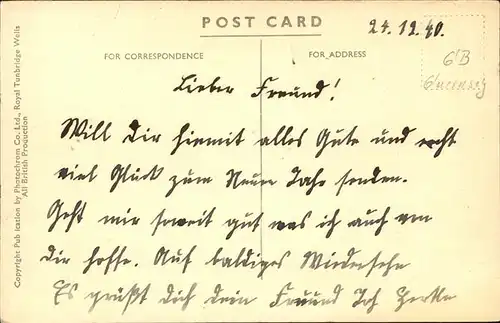 POST CARD
24.12.40.
FOR CORRESPONDENCE
FOR ADDRESS
6'B
Guernsey
Lieber Freund!
Will Dir hiermit alles Gute und recht
viel Glück zum Neuen Jahr senden.
Geht mir soweit gut was ich auch von
Dir hoffe. Auf baldiges Wiedersehn
Es grüßt Dich dein Freund
Copyright Publication by Photochrom Co., Ltd., Royal Tunbridge Wells
All British Production